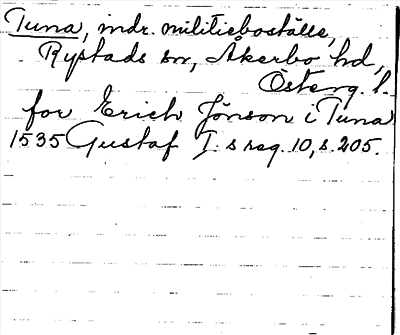 Tuna, indr. militieboställe,
Rystads sn, Åkerbo hd,
Österg. l.
for Erich Jönson i Tuna
1535 Gustaf I:s reg. 10, s. 205.